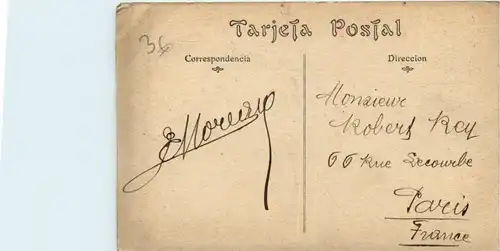 36
Tarjeta Postal
Correspondencia
Direccion
EMoreno
Monsieur
Robert Rey
66 Rue Lecourbe
Paris
France